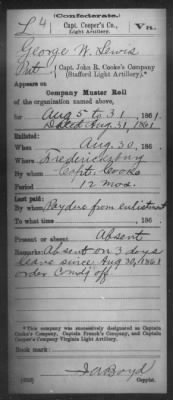 (Confederate.)
L 4 Capt. Cooper's Co., Va.
Light Artillery.
George W. Lewis
Pvt., Capt. John R. Cooke's Company
(Stafford Light Artillery).*
Appears on
Company Muster Roll
of the organization named above,
for Aug 5 to 31, 1861.
Dated Aug 31, 1861
Enlisted:
When Aug 30, 186
Where Fredericksburg
By whom Capt. Cooke
Period 12 mos.
Last paid:
By whom Pay due from enlistment
To what time , 186
Present or absent Absent
Remarks: Absent on 3 days
leave since Aug 30, 1861
order Comdg off.
*This company was successively designated as Captain
Cooke's Company, Captain French's Company, and Captain
Cooper's Company Virginia Light Artillery.
Book mark:
Boyd
Copyist.